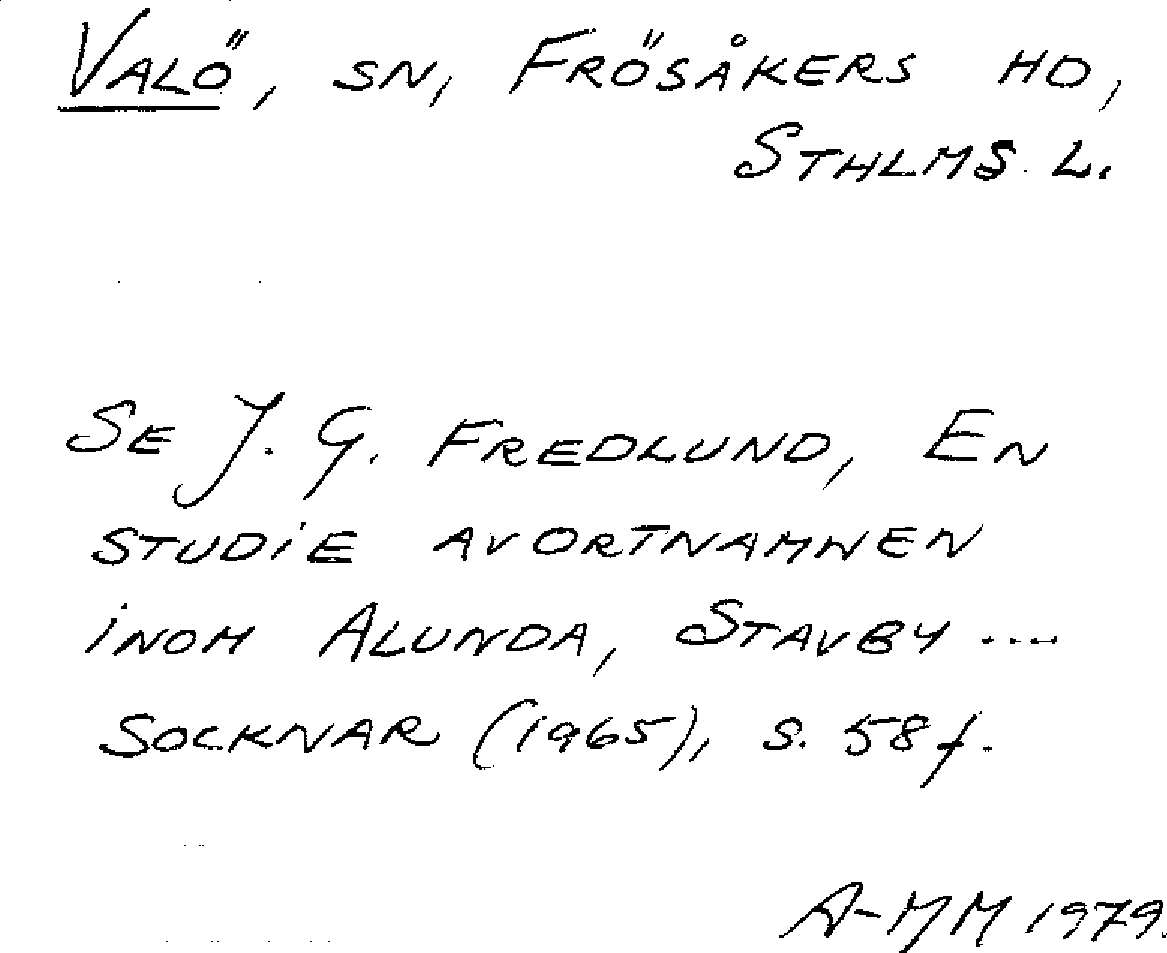 VALÖ, SN, FRÖSÅKERS HD,
STHLMS L.
SE J. G. FREDLUND, EN
STUDIE AV ORTNAMNEN
INOM ALUNDA, STAVBY ...
SOCKNAR (1965), S. 58 f.
A-MM 1979.